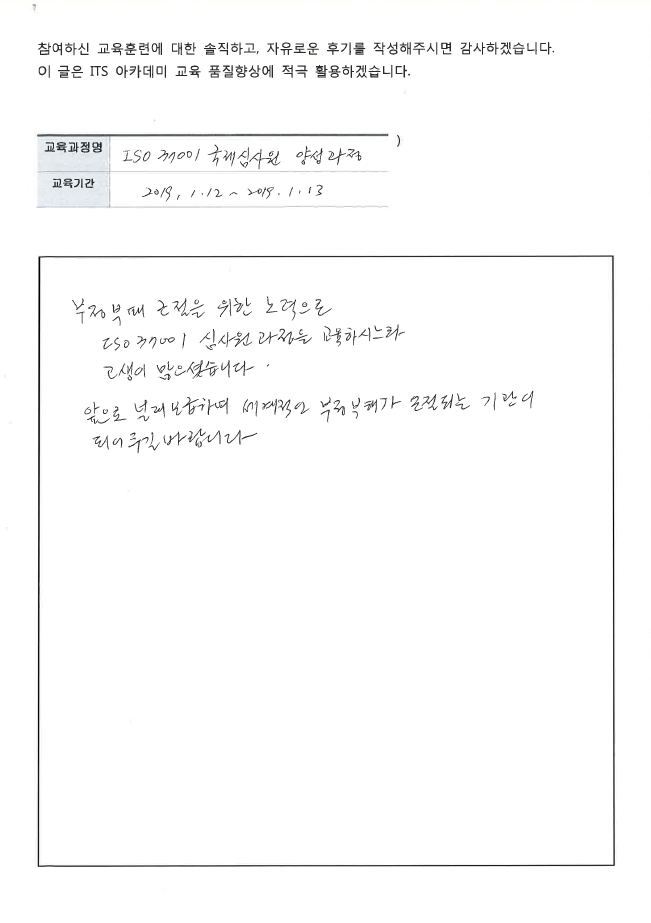 참여하신 교육훈련에 대한 솔직하고, 자유로운 후기를 작성해주시면 감사하겠습니다.
이 글은 ITS 아카데미 교육 품질향상에 적극 활용하겠습니다.
교육과정명 ISO 37001 국제심사원 양성과정 )
교육기간 2019. 1. 12 ~ 2019. 1. 13
부정부패 근절을 위한 노력으로
ISO 37001 심사원 과정을 교육하시느라
고생이 많으셨습니다.
앞으로 널리 보급하며 세계적인 부정부패가 근절되는 기관이
되어주길 바랍니다